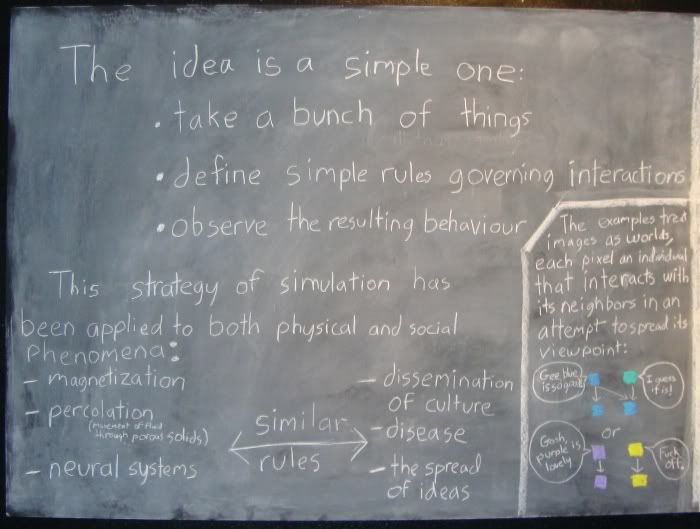 The idea is a simple one:
• take a bunch of things
• define simple rules governing interactions
• observe the resulting behaviour
This strategy of simulation has
been applied to both physical and social
phenomena:
- magnetization
- percolation
(movement of fluid
through porous solids)
- neural systems
similar
rules
- dissemination
of culture
- disease
- the spread
of ideas
The examples treat
images as worlds,
each pixel an individual
that interacts with
its neighbors in an
attempt to spread its
viewpoint:
Gee blue
is so great
I guess
it is!
or
Gosh,
purple is
lovely
Fuck
off.